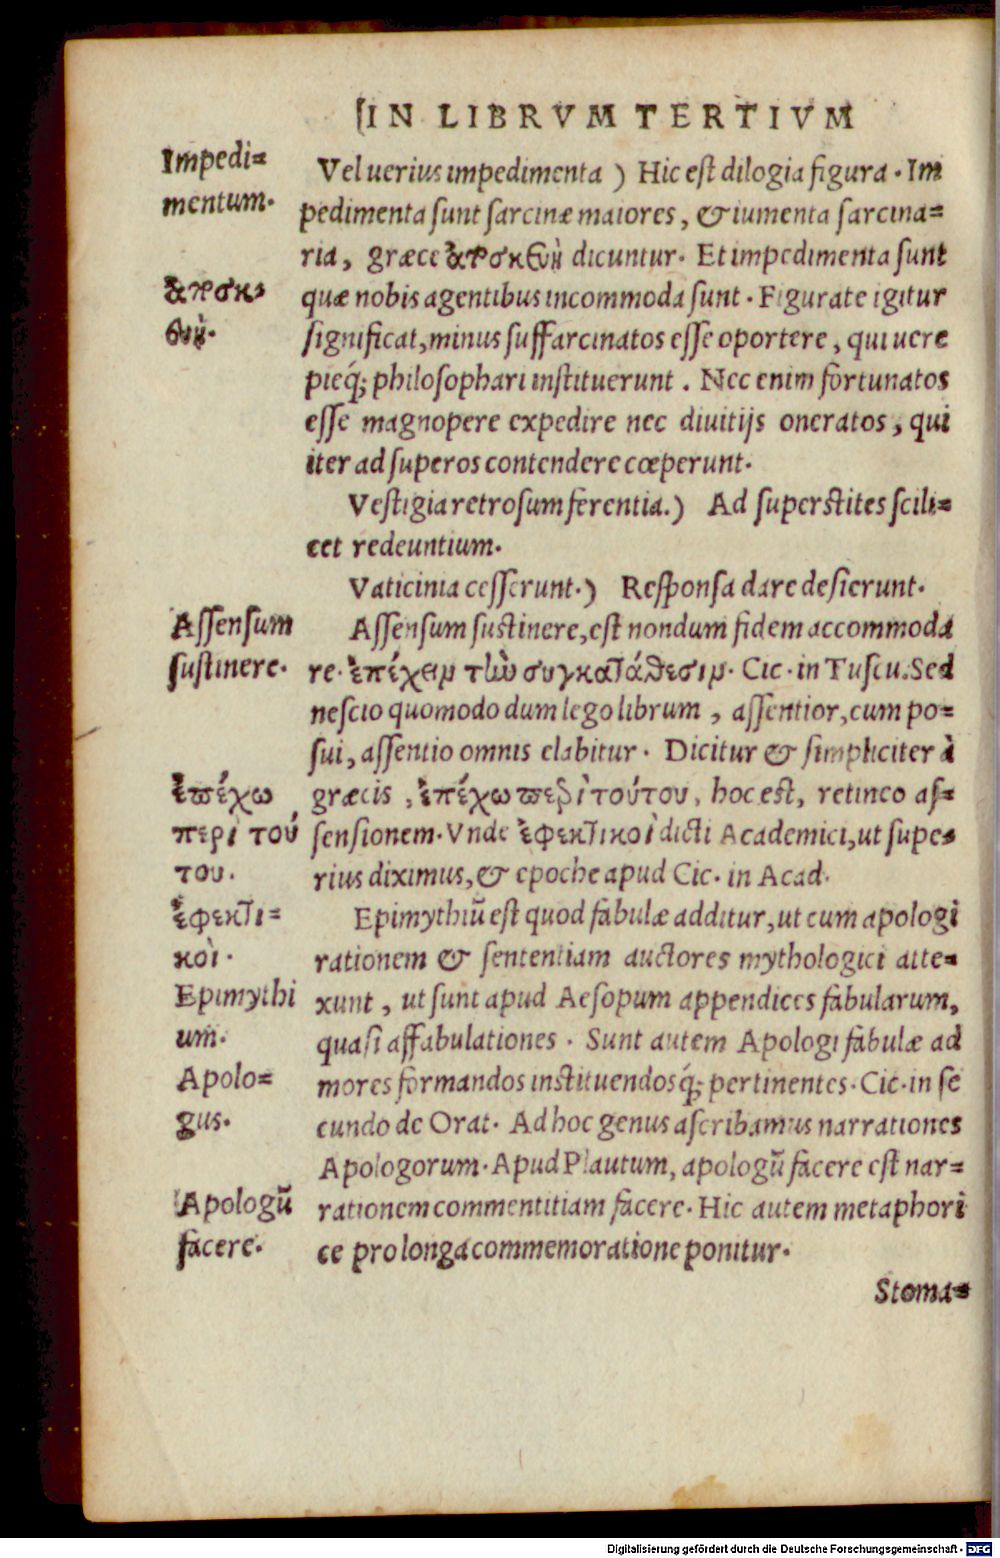 IN LIBRVM TERTIVM
Impedi=
mentum.
Vel uerius impedimenta ) Hic est dilogia figura. Im
pedimenta sunt sarcinæ maiores, & iumenta sarcina=
ria, græce ἀποσκευὴ dicuntur. Et impedimenta sunt
ἀποσκ=
ευὴ.
quæ nobis agentibus incommoda sunt. Figurate igitur
significat, minus suffarcinatos esse oportere, qui uere
pieq́; philosophari instituerunt. Nec enim fortunatos
esse magnopere expedire nec diuitijs oneratos, qui
iter ad superos contendere cœperunt.
Vestigia retrosum ferentia.) Ad superstites scili=
cet redeuntium.
Vaticinia cesserunt.) Responsa dare desierunt.
Assensum
sustinere.
Assensum sustinere, est nondum fidem accommoda
re. ἐπέχειν τὼ συγκατάθεσιν. Cic. in Tuscu. Sed
nescio quomodo dum lego librum, assentior, cum po=
sui, assentio omnis elabitur. Dicitur & simpliciter à
ἐπέχω
περὶ τού
του.
græcis, ἐπέχω περὶ τούτου, hoc est, retineo as=
sensionem. Vnde ἐφεκτικοὶ dicti Academici, ut supe=
rius diximus, & epoche apud Cic. in Acad.
ἐφεκτι=
κοὶ.
Epimythi
um.
Epimythiũ est quod fabulæ additur, ut cum apologi
rationem & sententiam auctores mythologici atte=
xunt, ut sunt apud Aesopum appendices fabularum,
quasi affabulationes. Sunt autem Apologi fabulæ ad
Apolo=
gus.
mores formandos instituendosq́; pertinentes. Cic. in se
cundo de Orat. Ad hoc genus ascribamus narrationes
Apologorum. Apud Plautum, apologũ facere est nar=
Apologũ
facere.
rationem commentitiam facere. Hic autem metaphori
ce pro longa commemoratione ponitur.
Stoma=
Digitalisierung gefördert durch die Deutsche Forschungsgemeinschaft - DFG